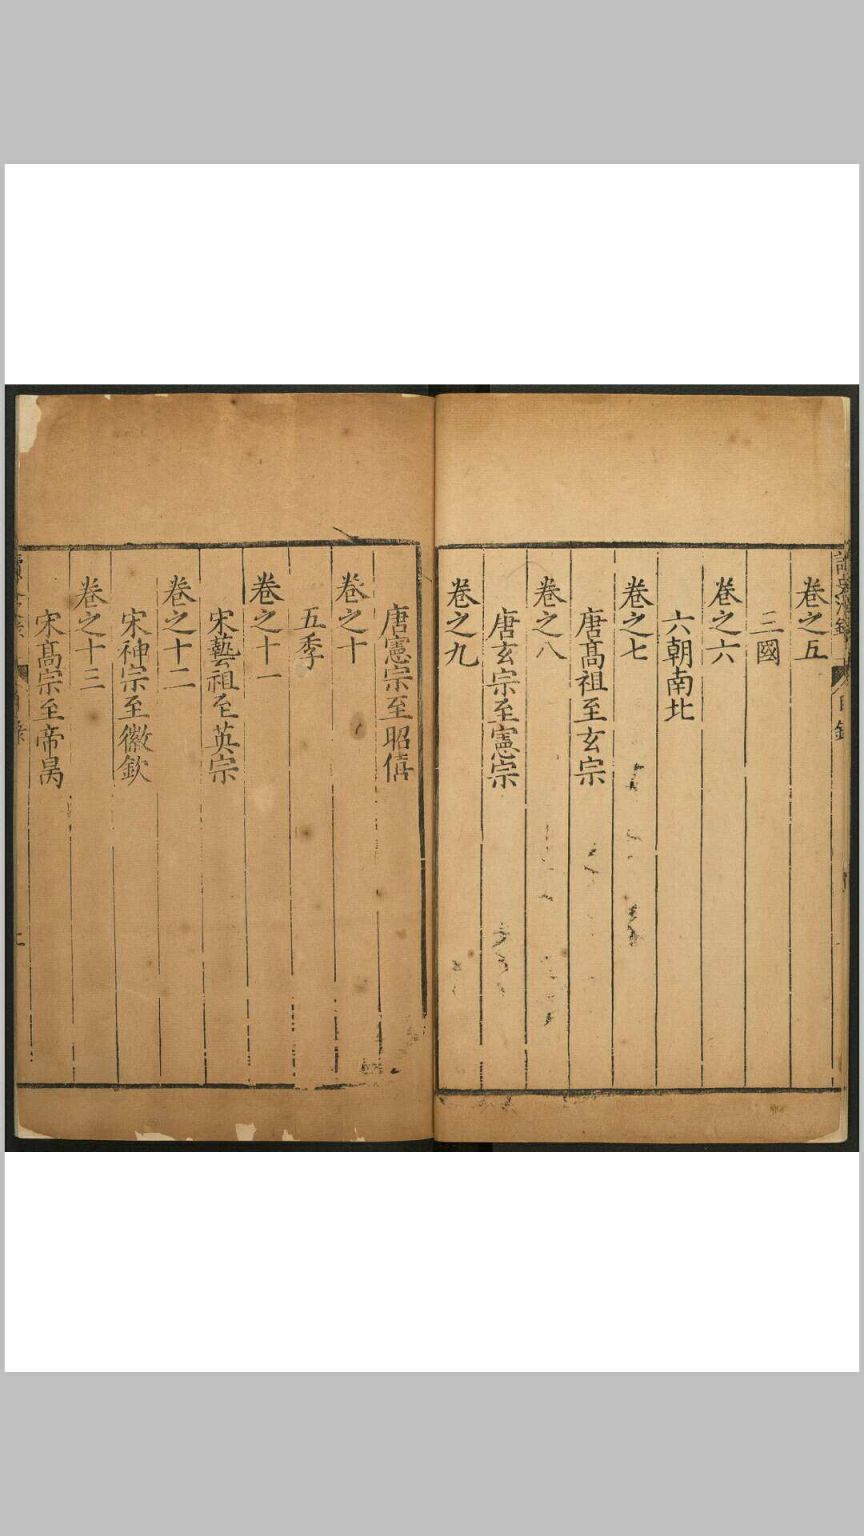 卷之五
三國
卷之六
六朝南北
卷之七
唐髙祖至玄宗
卷之八
唐玄宗至憲宗
卷之九
唐憲宗至昭僖
卷之十
五季
卷之十一
宋藝祖至英宗
卷之十二
宋神宗至徽欽
卷之十三
宋髙宗至帝昺